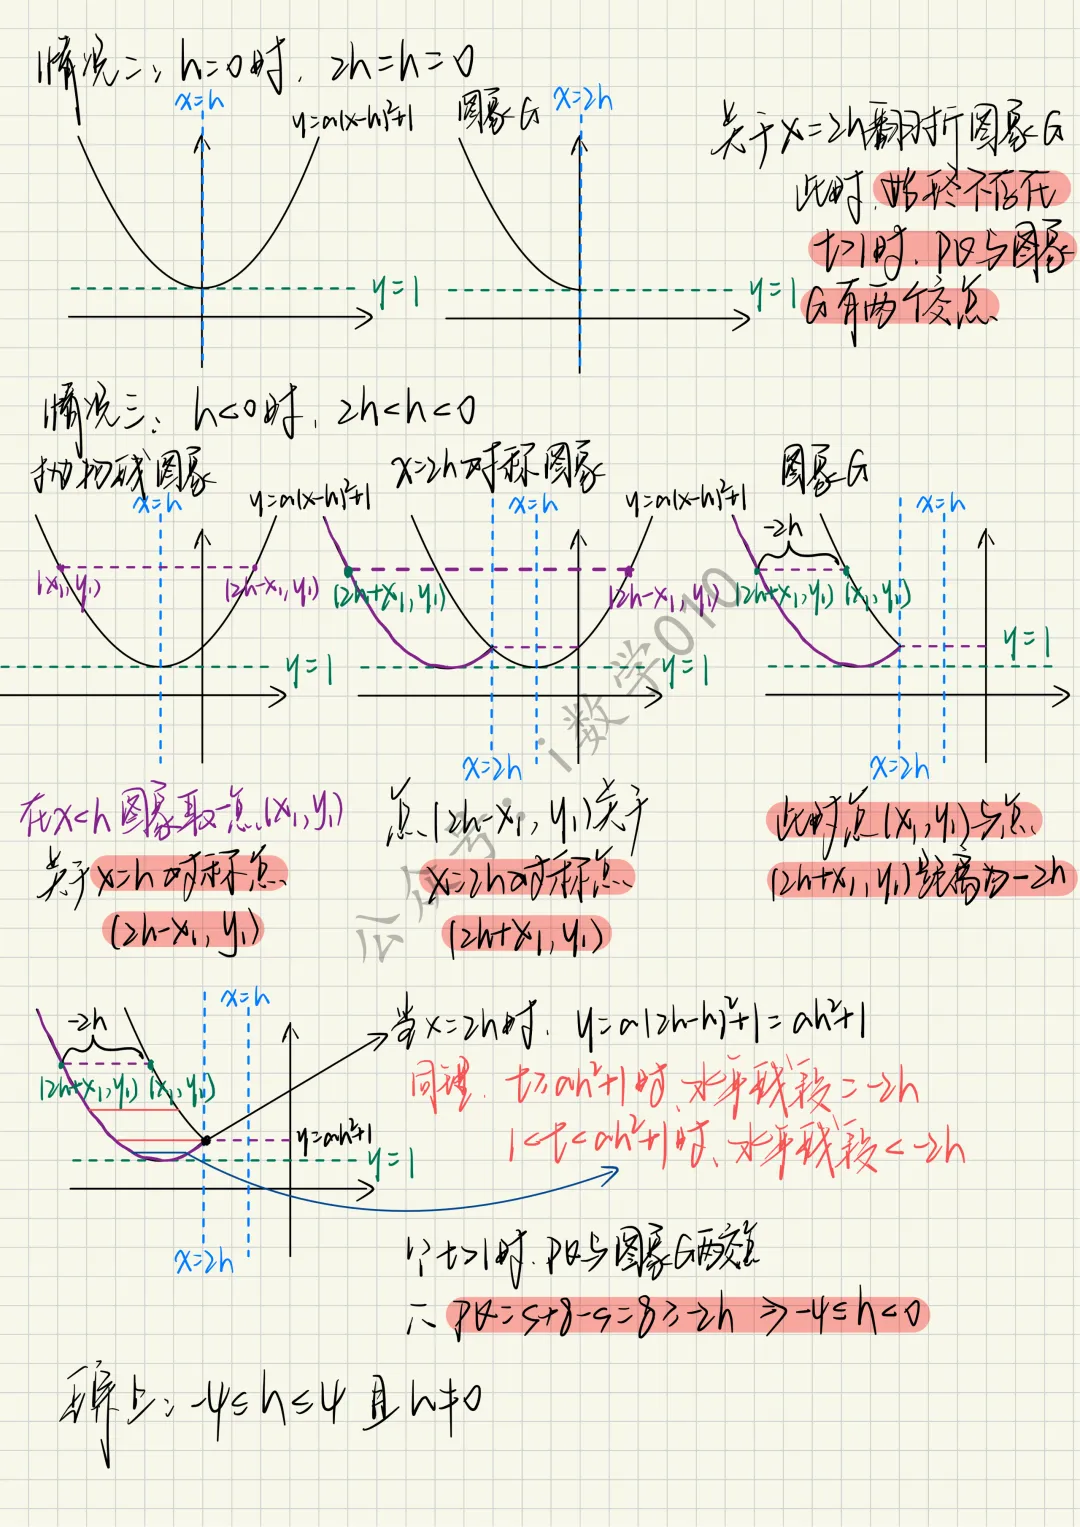 情况二: h=0时, 2h=h=0
x=h
y=a(x-h)²+1
图象G
x=2h
y=1
y=1
关于x=2h翻折图象G
此时,始终不存在
t>1时,PQ与图象
G有两个交点
情况三: h<0时, 2h<h<0
抛物线图象
x=h
y=a(x-h)²+1
(x₁,y₁)
(2h-x₁,y₁)
y=1
x=2h对称图象
x=h
y=a(x-h)²+1
(2h+x₁,y₁)
(2h-x₁,y₁)
y=1
x=2h
图象G
x=h
-2h
(2h+x₁,y₁) (x₁,y₁)
y=1
x=2h
在x<h图象取一点(x₁,y₁)
关于x=h对称点
(2h-x₁,y₁)
点(2h-x₁,y₁)关于
x=2h对称点
(2h+x₁,y₁)
此时点(x₁,y₁)与点
(2h+x₁,y₁)距离为-2h
x=h
-2h
(2h+x₁,y₁) (x₁,y₁)
y=ah²+1
y=1
x=2h
当x=2h时, y=a(2h-h)²+1=ah²+1
同理, t≥ah²+1时,水平线段=-2h
1<t<ah²+1时,水平线段<-2h
∵t>1时,PQ与图象G两交点
∴PQ=s+8-s=8≥-2h ⇒ -4≤h<0
综上: -4≤h≤4且h≠0
公众号:i数学010